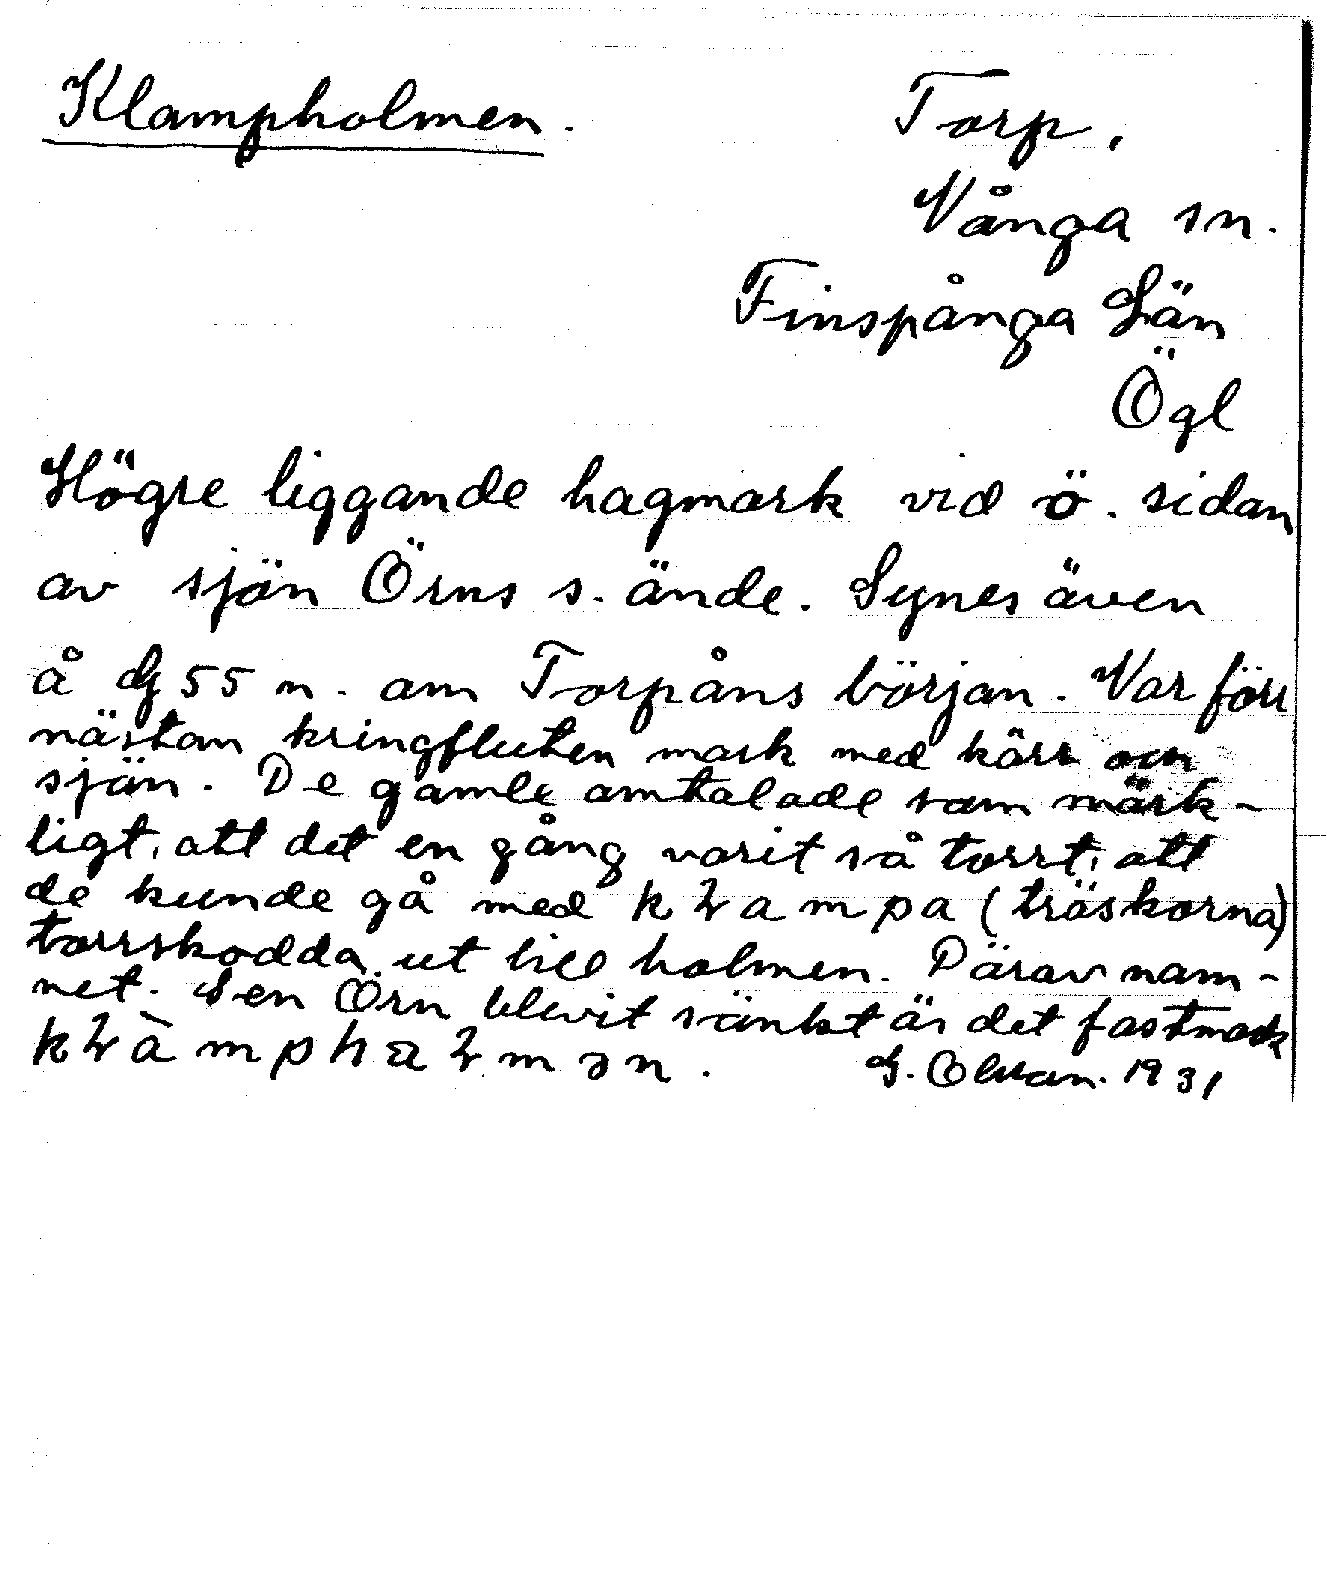 Klampholmen.
Torp,
Vånga sn.
Finspånga Län
Ögl
Högre liggande hagmark vid ö. sidan
av sjön Örns s. ände. Synes även
å dg 55 n. om Torpåns början. Var förr
nästan kringfluten mark med kärr och
sjön. De gamle omtalade som märk-
ligt, att det en gång varit så torrt, att
de kunde gå med klampa (träskorna)
torrskodda ut till holmen. Därav nam-
net. Sen Örn blevit sänkt är det fastmark
klàmphalmən.
G. Olsson. 1931